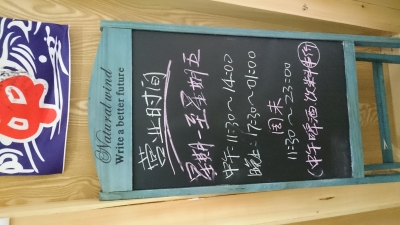 Natural wind
Write a better future
营业时间
星期一至星期五
中午: 11:30～14:00
晚上: 17:30～01:00
周末
11:30～23:00
(中午啤酒饮料半价)